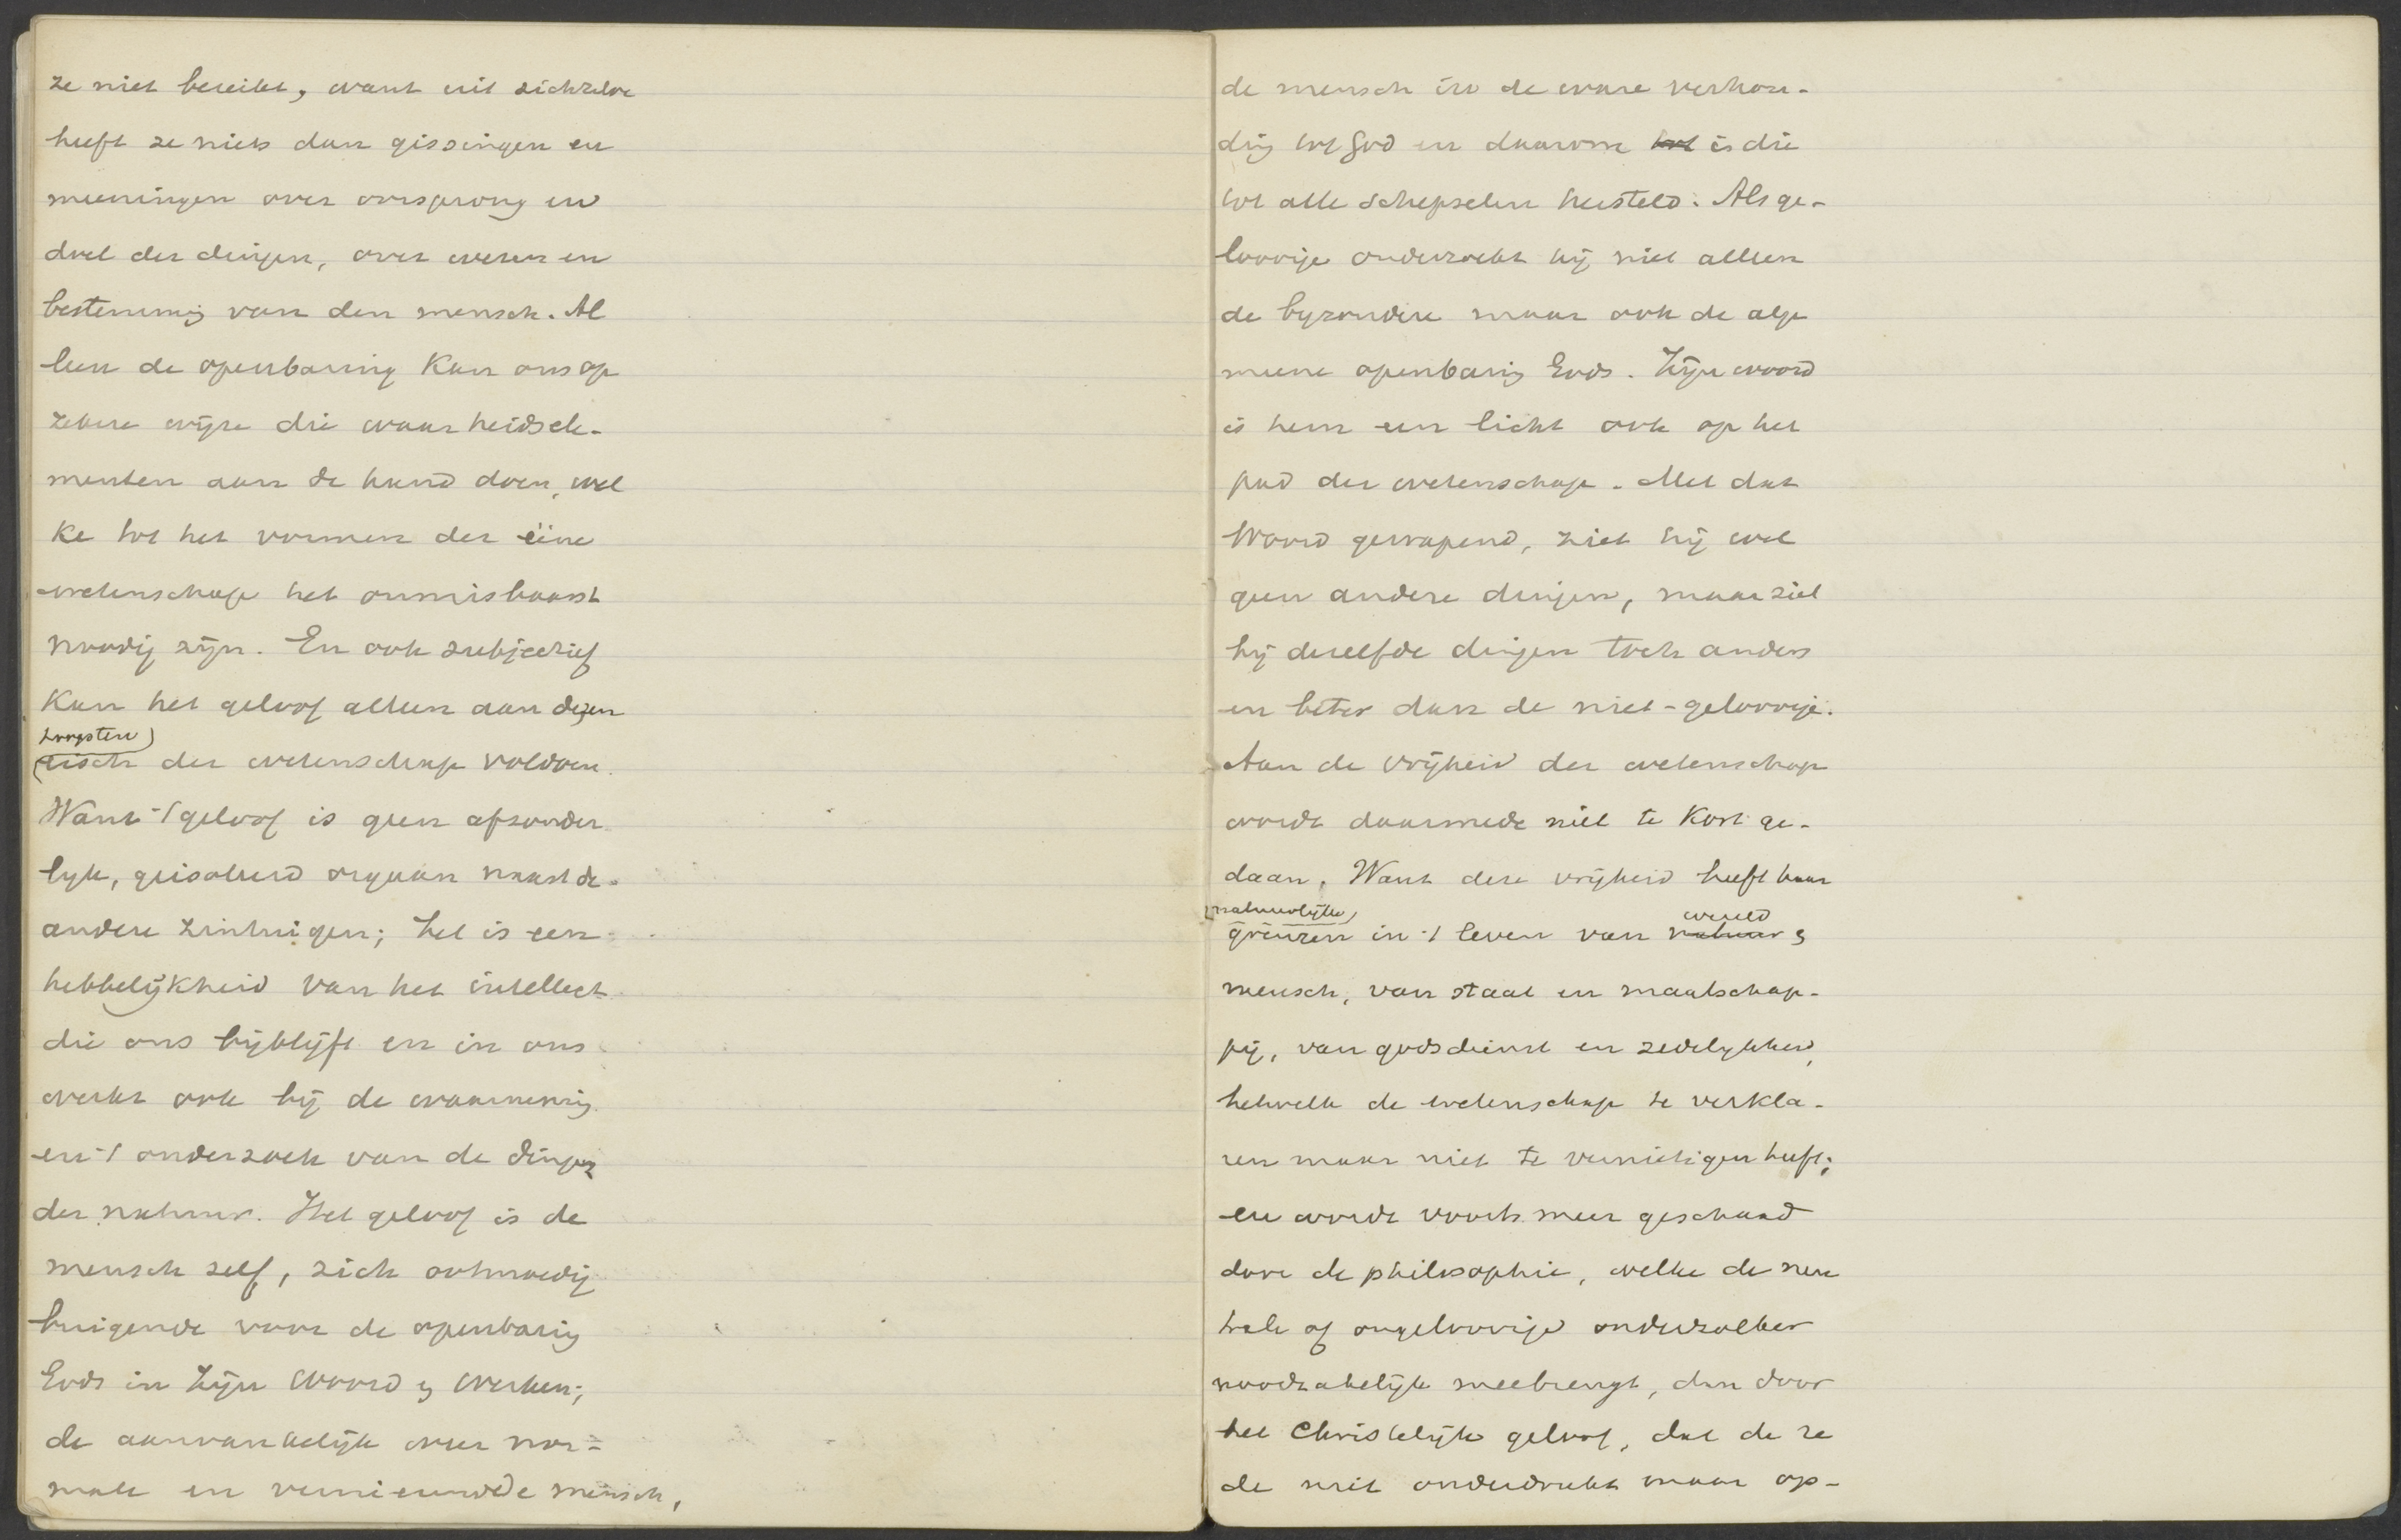 ze niet bereikt, want uit zichzelve
heeft ze niets dan gissingen en
meeningen over oorsprong en
doel der dingen, over wezen en
bestemming van den mensch. Al
leen de openbaring kan ons op
zekere wijze die waarheidsele-
menten aan de hand doen, wel
ke tot het vormen der ééne
wetenschap het onmisbaarst
noodig zijn. En ook subjectief
kan het geloof alleen aan dezen
hoogsten
eisch der wetenschap voldoen.
Want 't geloof is geen afzonder
lijk, geisoleerd orgaan naast de
andere zintuigen; het is een
hebbelijkheid van het intellect
die ons bijblijft en in ons
werkt ook bij de waarneming
en 't onderzoek van de dingen
der natuur. Het geloof is de
mensch zelf, zich ootmoedig
buigende voor de openbaring
Gods in Zijn Woord en werken;
de aanvankelijk weer nor=
male en vernieuwde mensch,
de mensch in de ware verhou-
ding tot God en daarom tot is die
tot alle schepselen hersteld. Als ge-
loovige onderzoekt hij niet alleen
de byzondere maar ook de alge
meene openbaring Gods. Zijn woord
is hem een licht ook op het
pad der wetenschap. Met dat
Woord gewapend, ziet hij wel
geen andere dingen, maar ziet
hij dezelfde dingen toch anders
en beter dan de niet-geloovige.
Aan de vrijheid der wetenschap
wordt daarmede niet te kort ge-
daan. Want deze vrijheid heeft haar
natuurlijke wereld
grenzen in 't leven van natuur en
mensch, van staat en maatschap-
pij, van godsdienst en zedelijkheid,
hetwelk de wetenschap te verkla-
ren maar niet te vernietigen heeft;
en wordt voorts meer geschaad
door de philosophie, welke de neu
trale of ongeloovige onderzoeker
noodzakelijk meebrengt, dan door
het Christelijk geloof, dat de re
de niet onderdrukt maar op-